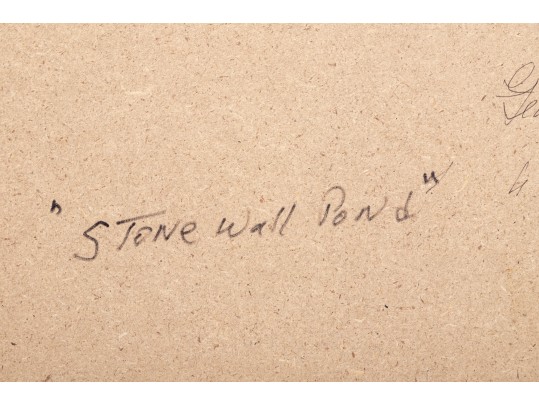 "STONE Wall POND"